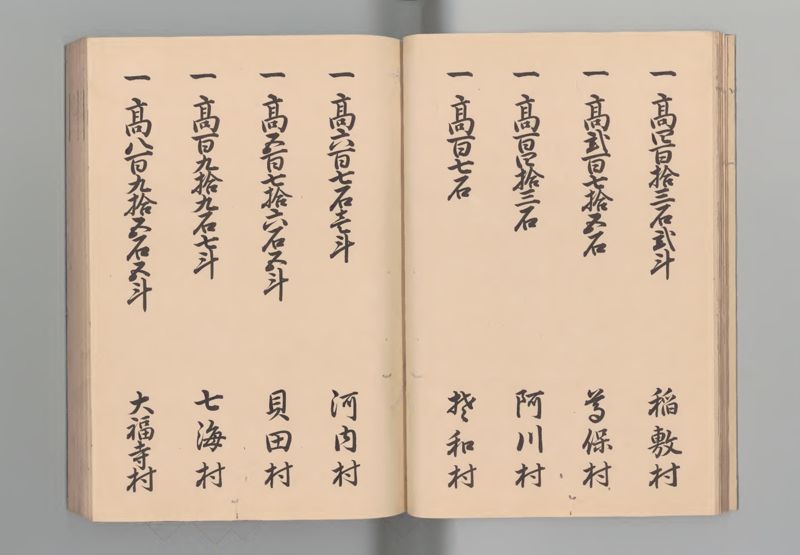 一 高四百拾三石弐斗 稲敷村
一 高弐百七拾五石 尊保村
一 高百四拾三石 阿川村
一 高百七石 楚和村
一 高六百七石壱斗 河内村
一 高五百七拾六石五斗 貝田村
一 高百九拾九石七斗 七海村
一 高八百九拾五石五斗 大福寺村